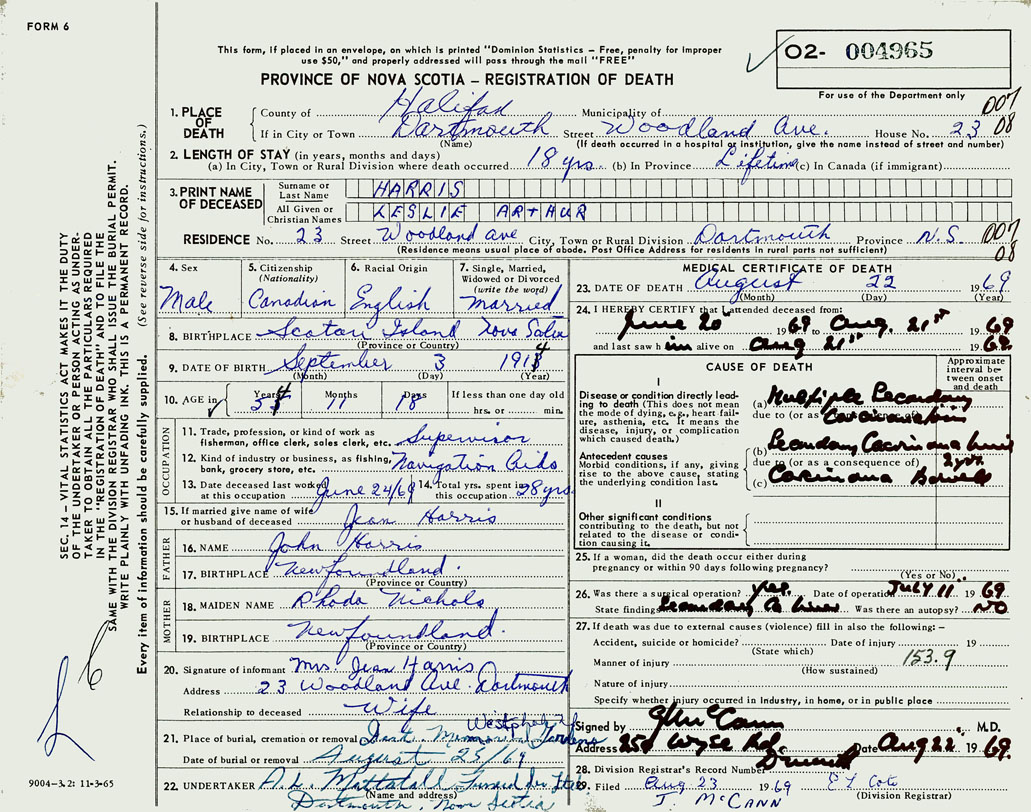 FORM 6
This form, if placed in an envelope, on which is printed "Dominion Statistics – Free, penalty for improper
use $50," and properly addressed will pass through the mail "FREE"
O2- 004965
PROVINCE OF NOVA SCOTIA – REGISTRATION OF DEATH
For use of the Department only
007
08
1. PLACE OF DEATH
County of Halifax Municipality of
If in City or Town Dartmouth Street Woodland Ave. House No. 23
(Name) (If death occurred in a hospital or institution, give the name instead of street and number)
2. LENGTH OF STAY (in years, months and days)
(a) In City, Town or Rural Division where death occurred 18 yrs. (b) In Province Lifetime (c) In Canada (if immigrant)
3. PRINT NAME OF DECEASED
Surname or Last Name HARRIS
All Given or Christian Names LESLIE ARTHUR
RESIDENCE No. 23 Street Woodland Ave City, Town or Rural Division Dartmouth Province N.S. 007
08
(Residence means usual place of abode. Post Office Address for residents in rural parts not sufficient)
4. Sex
Male
5. Citizenship (Nationality)
Canadian
6. Racial Origin
English
7. Single, Married, Widowed or Divorced (write the word)
Married
8. BIRTHPLACE Scatari Island Nova Scotia
(Province or Country)
9. DATE OF BIRTH September 3 1914
(Month) (Day) (Year)
10. AGE in Years 54 Months 11 Days 18 If less than one day old
hrs. or min.
OCCUPATION
11. Trade, profession, or kind of work as
fisherman, office clerk, sales clerk, etc. Supervisor
12. Kind of industry or business, as fishing,
bank, grocery store, etc. Navigation Aids
13. Date deceased last worked at this occupation June 24/69 14. Total yrs. spent in this occupation 28 yrs.
15. If married give name of wife
or husband of deceased Jean Harris
FATHER
16. NAME John Harris
17. BIRTHPLACE Newfoundland.
(Province or Country)
MOTHER
18. MAIDEN NAME Rhoda Nichols
19. BIRTHPLACE Newfoundland.
(Province or Country)
20. Signature of informant Mrs. Jean Harris
Address 23 Woodland Ave. Dartmouth
Relationship to deceased Wife
Westphal
21. Place of burial, cremation or removal Memorial Gardens
Date of burial or removal August 25/69
22. UNDERTAKER A.L. Mattatall Funeral
(Name and address)
Dartmouth, Nova Scotia
MEDICAL CERTIFICATE OF DEATH
23. DATE OF DEATH August 22 1969.
(Month) (Day) (Year)
24. I HEREBY CERTIFY that I attended deceased from:
June 20 1969 to Aug. 21st 1969
and last saw him alive on Aug 21st 1969.
CAUSE OF DEATH
Approximate interval between onset and death
I
Disease or condition directly leading to death (This does not
mean the mode of dying, e.g., heart failure, asthenia, etc. It means the
disease, injury, or complication
which caused death.)
(a) Multiple Secondary
due to (or as Carcinoma
Antecedent causes
Morbid conditions, if any, giving
rise to the above cause, stating
the underlying condition last.
(b) Secondary Carcinoma
due to (or as a consequence of) 2 yrs.
(c) Carcinoma Bowel
II
Other significant conditions
contributing to the death, but not
related to the disease or condition causing it.
25. If a woman, did the death occur either during
pregnancy or within 90 days following pregnancy?
(Yes or No)
26. Was there a surgical operation? yes. Date of operation JULY 11 1969
State findings Secondary Ca Liver Was there an autopsy? NO
27. If death was due to external causes (violence) fill in also the following: –
Accident, suicide or homicide? Date of injury 19
(State which)
Manner of injury 153.9
(How sustained)
Nature of injury
Specify whether injury occurred in Industry, in home, or in public place
Signed by McCann M.D.
Address 254 Wyse Rd. Date Aug 22 1969.
28. Division Registrar's Record Number
29. Filed Aug 23 1969
(Division Registrar)
J. MCCANN
SEC. 14 – VITAL STATISTICS ACT MAKES IT THE DUTY
OF THE UNDERTAKER OR PERSON ACTING AS UNDERTAKER TO OBTAIN ALL THE PARTICULARS REQUIRED
IN THE "REGISTRATION OF DEATH" AND TO FILE THE
SAME WITH THE DIVISION REGISTRAR WHO SHALL ISSUE THE BURIAL PERMIT.
WRITE PLAINLY WITH UNFADING INK. THIS IS A PERMANENT RECORD.
Every item of information should be carefully supplied. (See reverse side for instructions.)
9004-3.2: 11-3-65